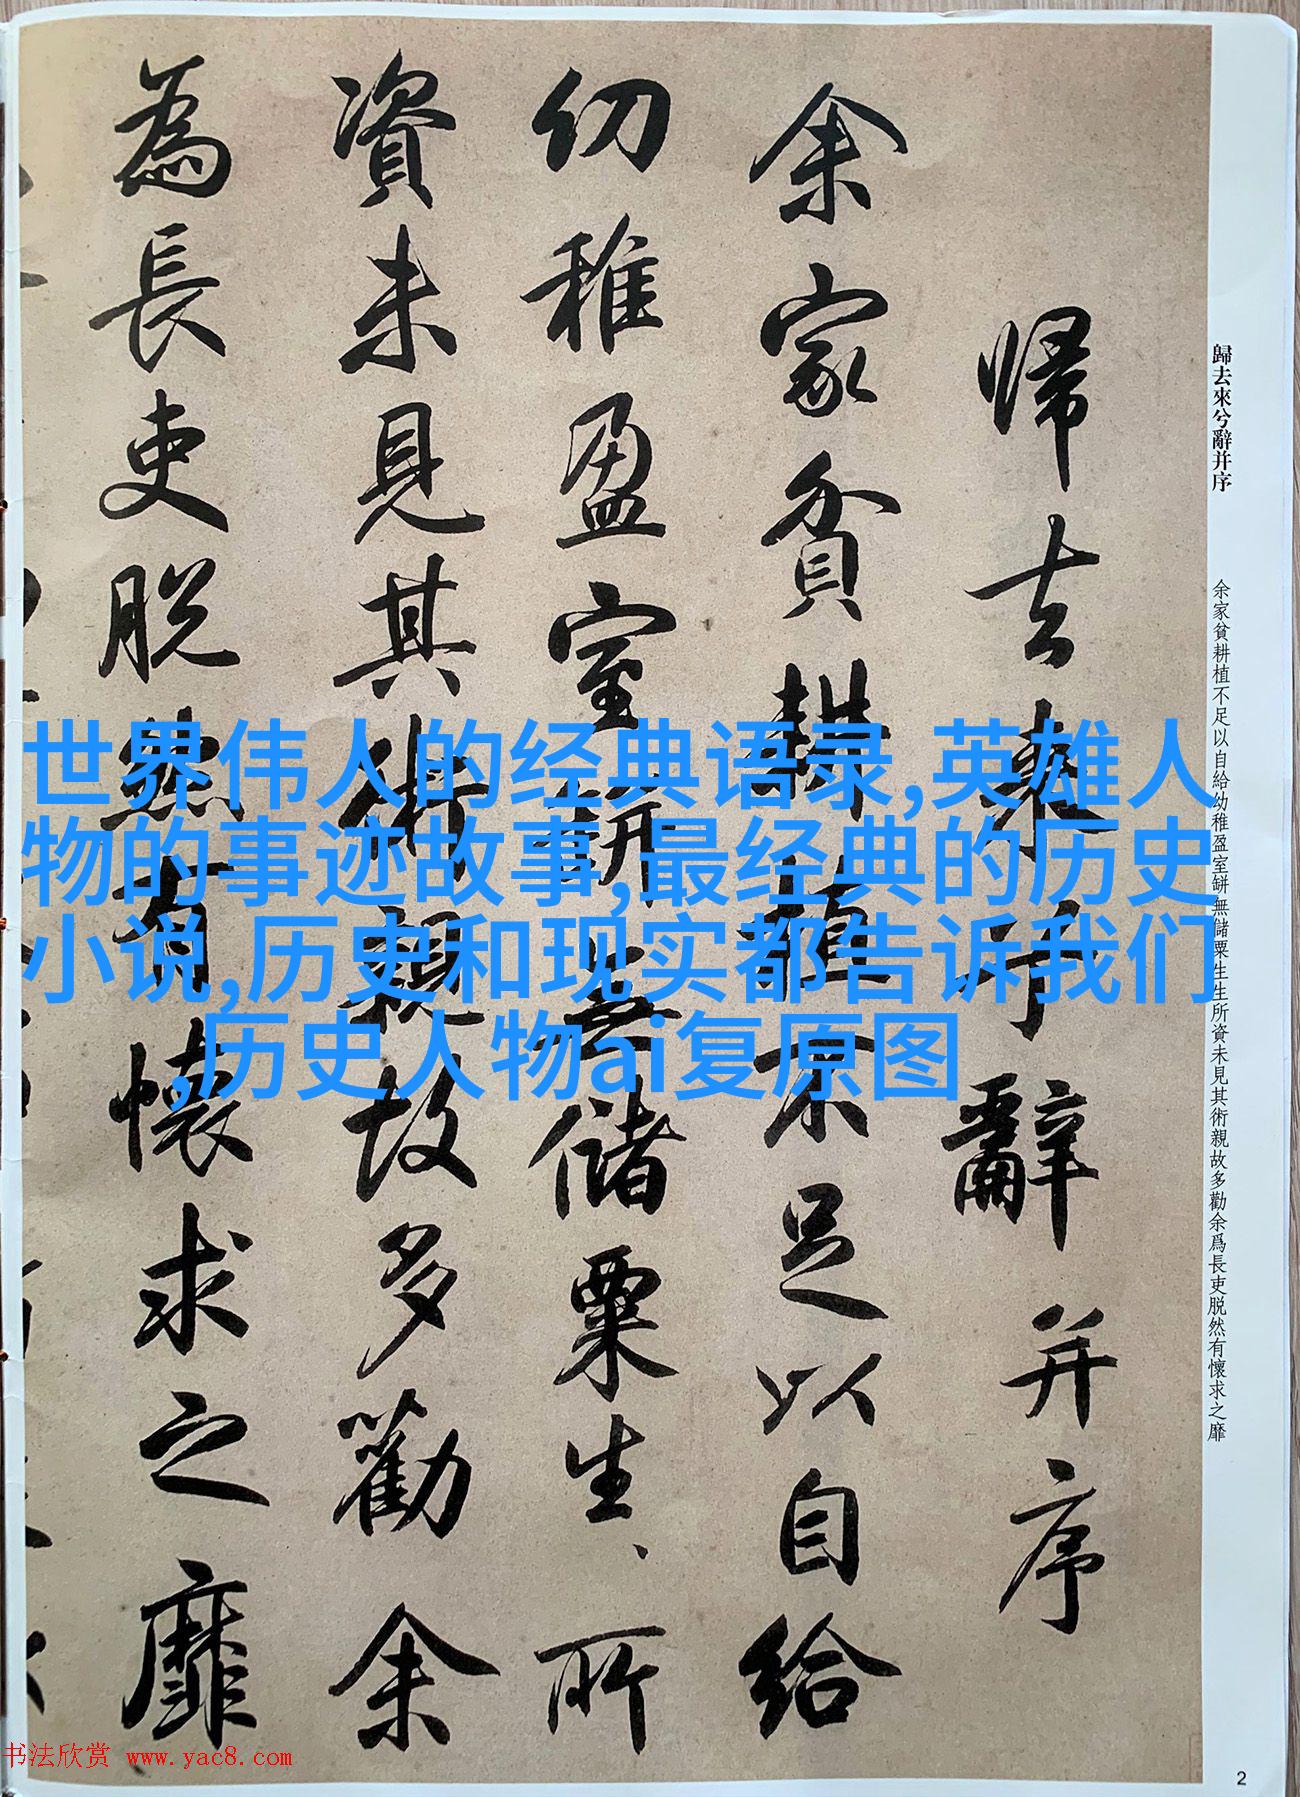 歸去來兮辭并序
余家貧耕植不足以自給幼稚盈室缾無儲粟生生所資未見其術親故多勸余爲長吏脱然有懷求之靡
歸去來兮辭并序
余家貧耕植不足以自給
幼稚盈室缾無儲粟生、所
資未見其術親故多勸余
為長吏脫然有懷求之靡
世界伟人的经典语录,英雄人
物的事迹故事,最经典的历史
小说,历史和现实都告诉我们
,历史人物ai复原图
书法欣赏 www.yac8.com
2